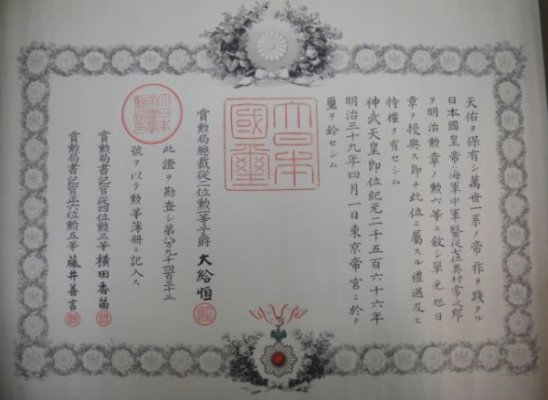 天佑ヲ保有シ萬世一系ノ帝祚ヲ踐タル
日本國皇帝海軍中軍醫從七位奥村常次郎
ヲ明治勲章ノ勲六等ニ敍シ單光旭日
章ヲ授與ス即チ此位ニ屬スル禮遇及ヒ
特權ヲ有セシム
神武天皇即位紀元二千五百六十六年
明治三十九年四月一日東京帝宮ニ於テ
璽ヲ鈐セシム
大日本
國璽
賞勲局總裁從二位勲一等子爵 大給恒
此證ヲ勘査シ第八万九千四百三十三
號ヲ以テ勲等簿冊ニ記入ス
賞勲局書記官從四位勲三等 横田香苗
賞勲局書記官正六位勲五等 藤井善言